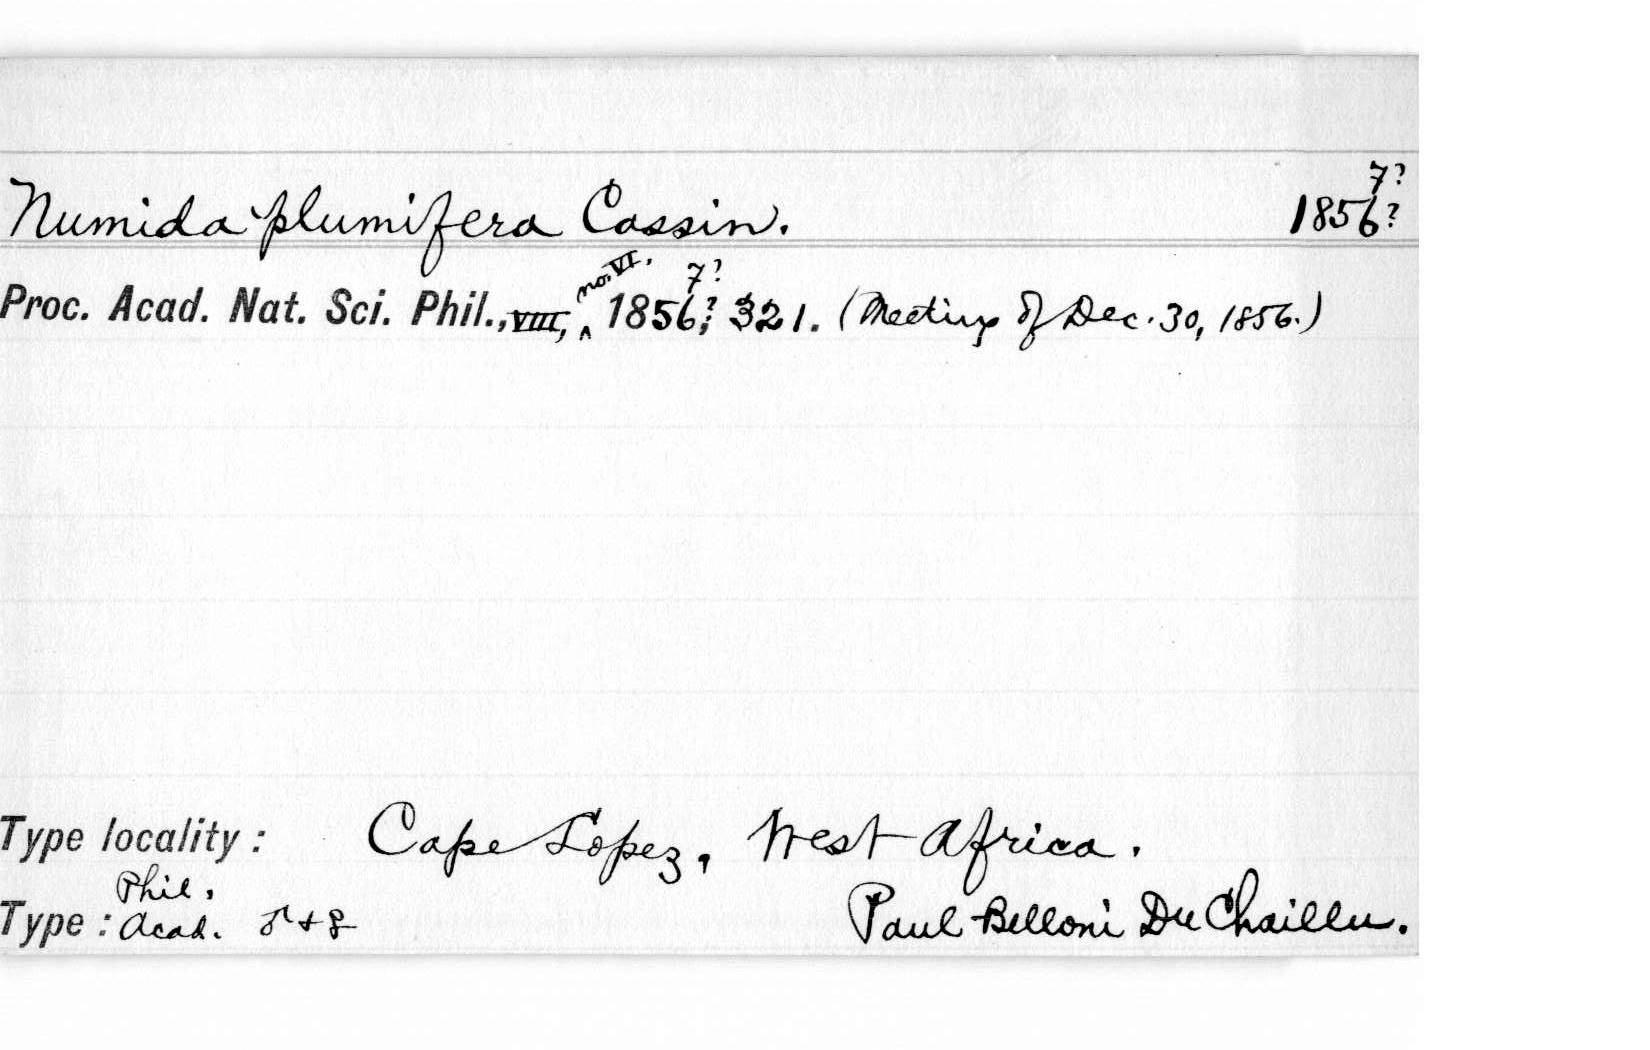 7?
Numida plumifera Cassin. 1856?
no. VI. 7?
Proc. Acad. Nat. Sci. Phil., VIII, ^ 1856?, 321. (Meeting of Dec. 30, 1856.)
Type locality : Cape Lopez, West Africa.
Phil.
Type : Acad. ♂ + ♀ Paul Belloni Du Chaillu.